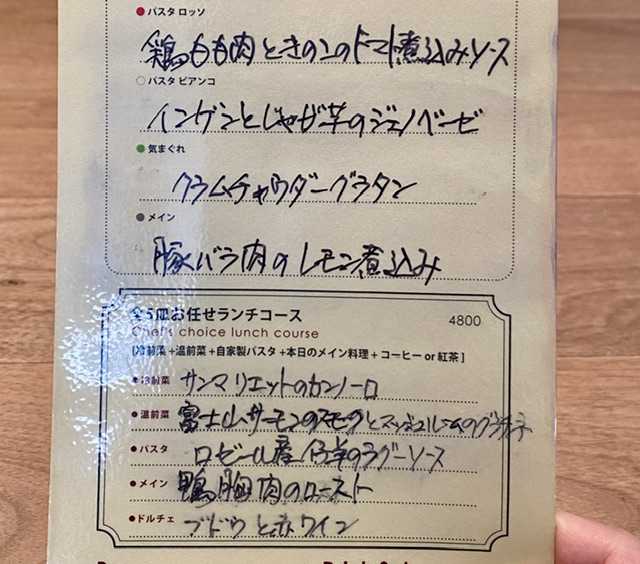 ● パスタ ロッソ
鶏もも肉ときのこのトマト煮込みソース
○ パスタ ビアンコ
インゲンとじゃが芋のジェノベーゼ
● 気まぐれ
クラムチャウダーグラタン
● メイン
豚バラ肉のレモン煮込み
全5皿お任せランチコース 4800
Chef's choice lunch course
[冷前菜+温前菜+自家製パスタ+本日のメイン料理+コーヒー or 紅茶]
● 冷前菜 サンマリエットのカンノーロ
● 温前菜 富士山サーモンのスモークとマッシュルームの
● パスタ ロゼール産仔羊のラグーソース
● メイン 鴨胸肉のロースト
● ドルチェ ブドウと赤ワイン